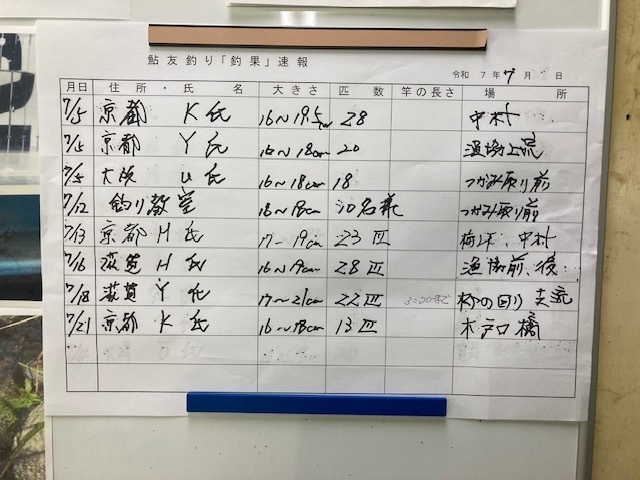 鮎友釣り「釣果」速報
令和 7年 7月 日
月日 住所・氏名 大きさ 匹数 竿の長さ 場所
7/5 京都 K氏 16～19.5cm 28 中村
7/5 京都 Y氏 16～18cm 20 漁場上流
7/5 大阪 U氏 16～18cm 18 つかみ取り前
7/12 釣り教室 16～18cm 30名 つかみ取り前
7/13 京都 H氏 17～19cm 23匹 中村
7/16 滋賀 H氏 16～19cm 28匹 漁協前、後
7/18 滋賀 Y氏 17～21cm 22匹 3:00まで 支流
7/21 京都 K氏 16～18cm 13匹 木戸口橋